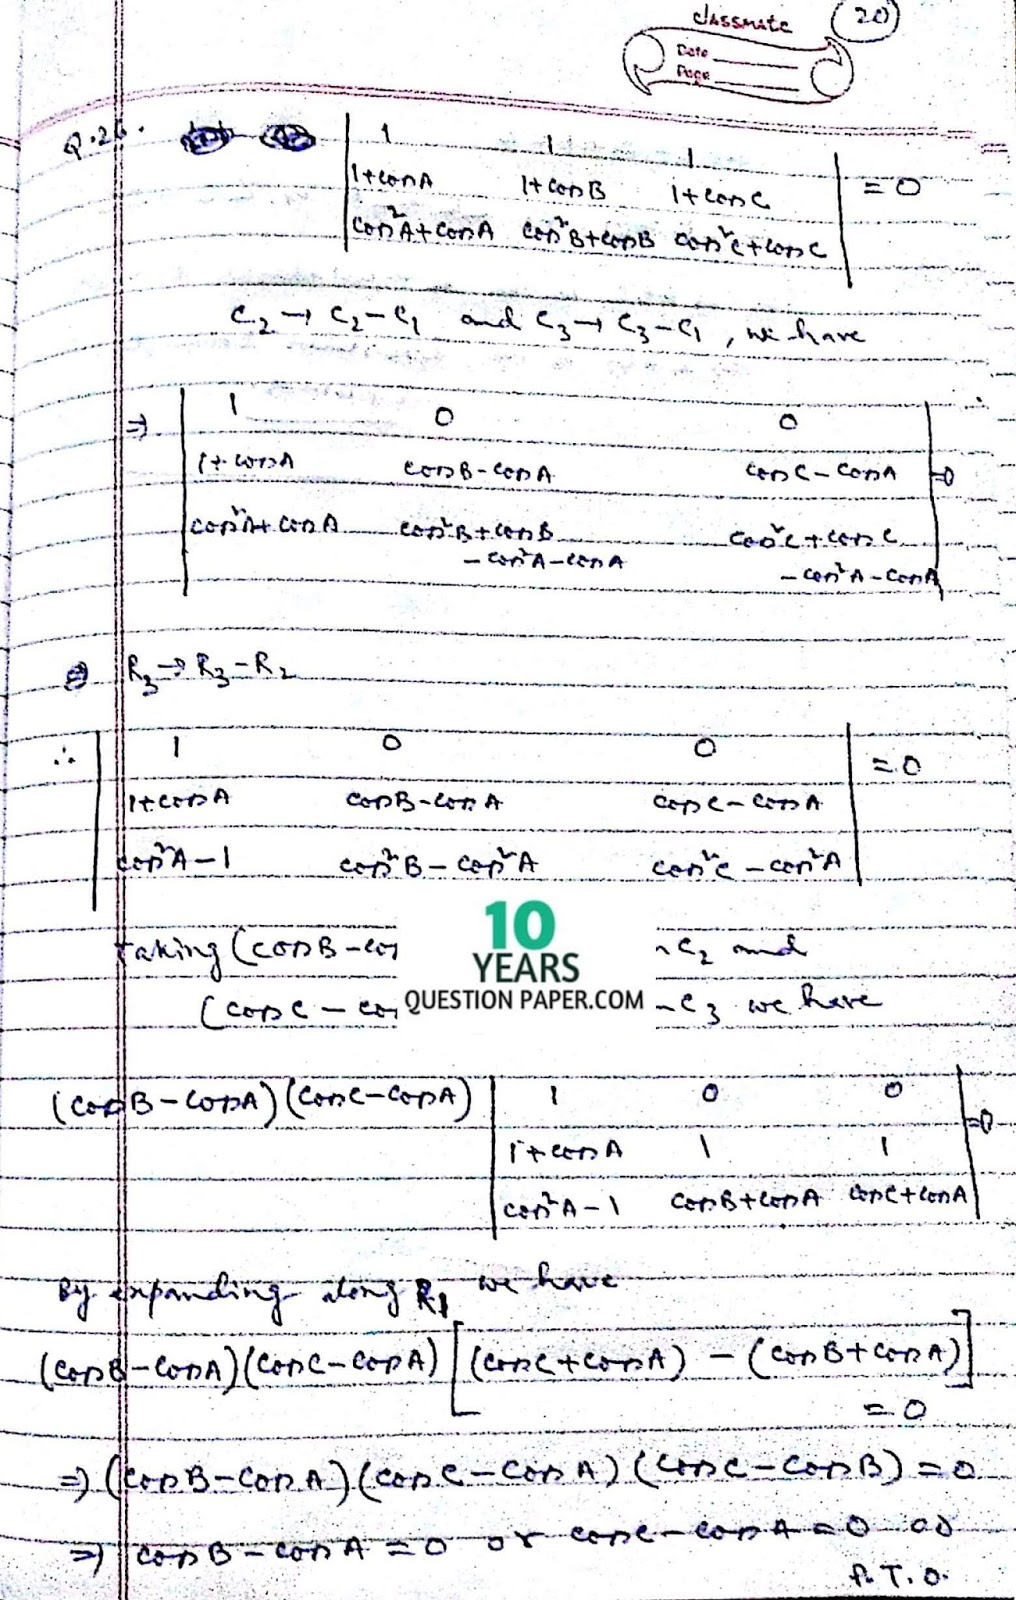 classmate
20
Date
Page
Q.26.
1 1 1
1+cosA 1+cosB 1+cosC = 0
cos²A+cosA cos²B+cosB cos²C+cosC
C₂→C₂-C₁ and C₃→C₃-C₁, we have
⇒ 1 0 0
1+cosA cosB-cosA cosC-cosA =0
cos²A+cosA cos²B+cosB cos²C+cosC
-cos²A-cosA -cos²A-cosA
R₃→R₃-R₂
∴ 1 0 0 =0
1+cosA cosB-cosA cosC-cosA
cos²A-1 cos²B-cos²A cos²C-cos²A
taking (cosB-cos C₂ and
(cosC-cos C₃ we have
10
YEARS
QUESTION PAPER.COM
(cosB-cosA)(cosC-cosA) 1 0 0 =0
1+cosA 1 1
cos²A-1 cosB+cosA cosC+cosA
By expanding along R₁ we have
(cosB-cosA)(cosC-cosA)[(cosC+cosA) - (cosB+cosA)]
= 0
⇒ (cosB-cosA)(cosC-cosA)(cosC-cosB)=0
⇒ cosB-cosA=0 or cosC-cosA=0 or
P.T.O.